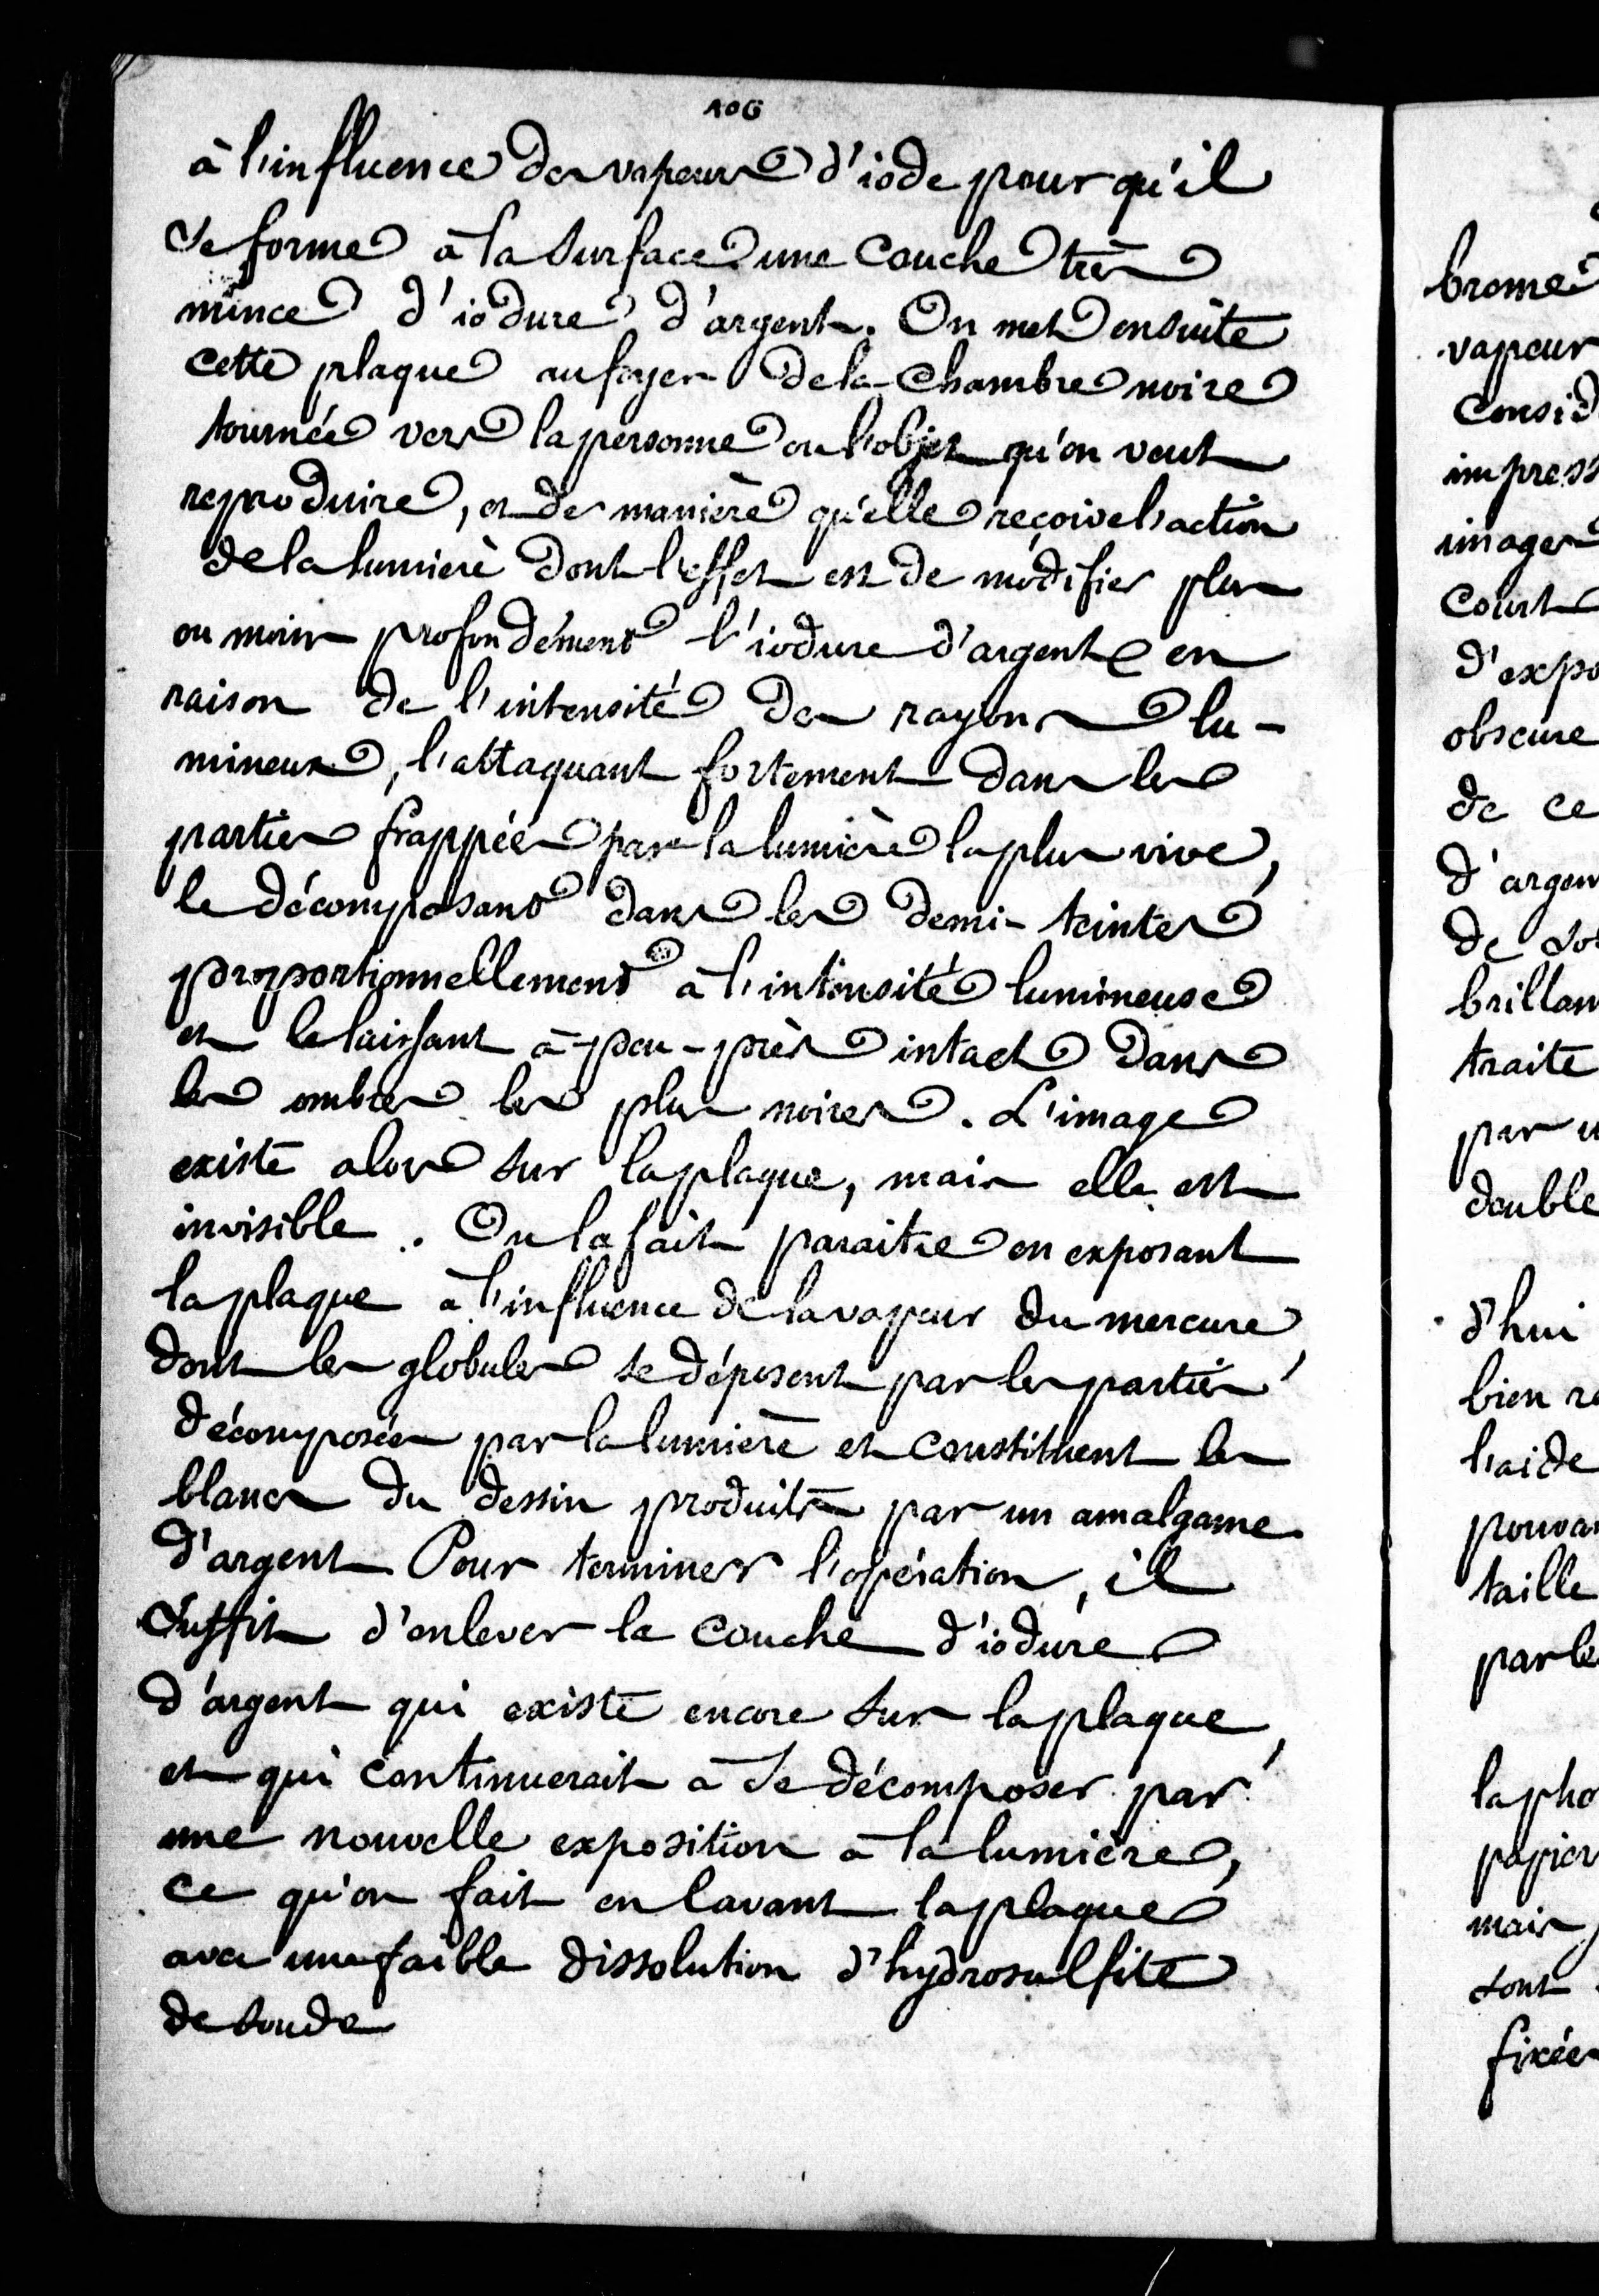 106
à l'influence des vapeurs d'iode pour qu'il
se forme à la surface une couche très
mince d'iodure d'argent. On met ensuite
cette plaque au foyer de la chambre noire
tournée vers la personne ou l'objet qu'on veut
reproduire, et de manière qu'elle reçoive l'action
de la lumière dont l'effet est de modifier plus
ou moins profondément l'iodure d'argent en
raison de l'intensité des rayons lu-
mineux, l'attaquant fortement dans les
parties frappées par la lumière la plus vive,
le décomposant dans les demi-teintes
proportionnellement à l'intensité lumineuse
et le laissant à-peu-près intact dans
les ombres les plus noires. L'image
existe alors sur la plaque, mais elle est
invisible. On la fait paraitre en exposant
la plaque à l'influence de la vapeur du mercure,
dont les globules se déposent par les parties
décomposées par la lumière et constituent les
blancs du dessin produits par un amalgame
d'argent Pour terminer l'opération, il
suffit d'enlever la couche d'iodure
d'argent qui existe encore sur la plaque,
et qui continuerait à se décomposer par
une nouvelle exposition à la lumière,
ce qu'on fait en lavant la plaque
avec une faible dissolution d'hydrosulfite
de soude
brome
vapeur
consid
impress
images
court
d'expo
obscure
de ce
d'argen
de
brillan
traite
par
double
d'hui
bien re
l'aide
pouva
taille
par le
la pho
papier
mais
sont
fixées